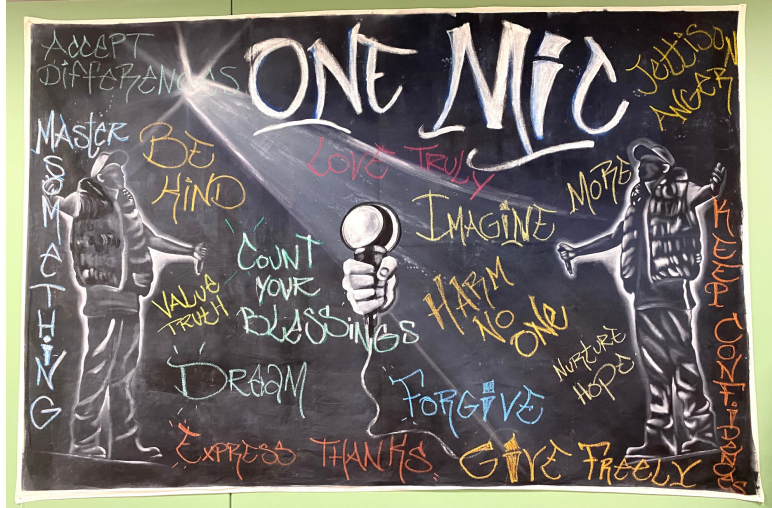 ACCEPT
DIFFERENCES
ONE MIC
JETTISON
ANGER
MASTER
SOMETHING
BE
KIND
LOVE TRULY
IMAGINE
MORE
COUNT
YOUR
BLESSINGS
VALUE
TRUTH
HARM
NO
ONE
KEEP CONFIDENCES
NURTURE
HOPE
DREAM
FORGIVE
EXPRESS THANKS
GIVE FREELY